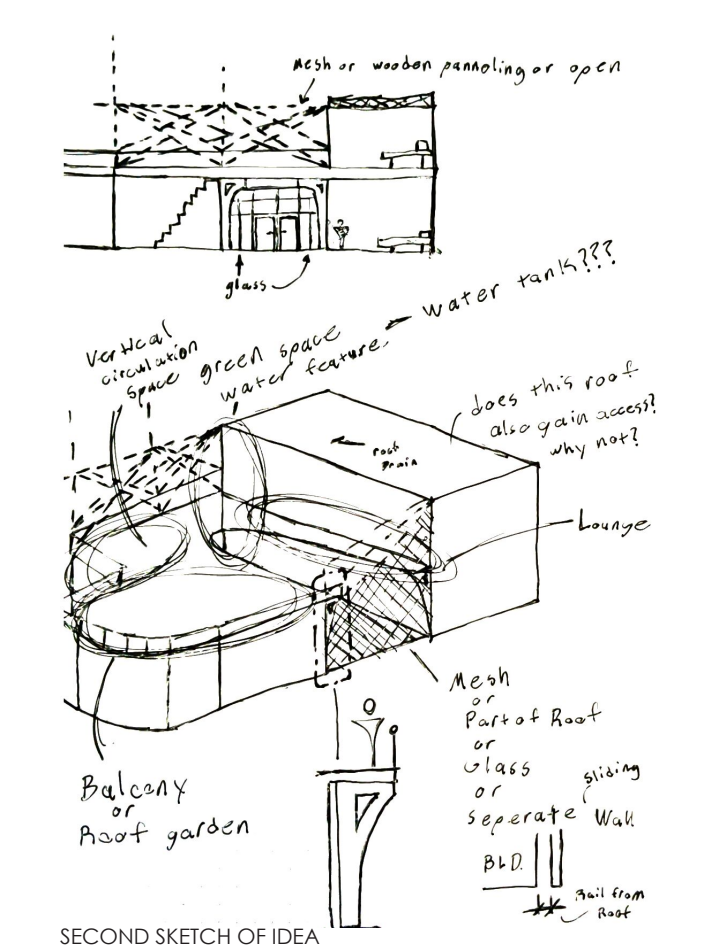 Mesh or wooden panneling or open
glass
water tank???
Vertical
circulation
space
green space
water feature
does this roof
also gain access?
why not?
roof
Drain
Lounge
Mesh
or
Part of Roof
or
Glass
or
seperate sliding Wall
Balcony
or
Roof garden
BLD.
Rail from
Roof
SECOND SKETCH OF IDEA